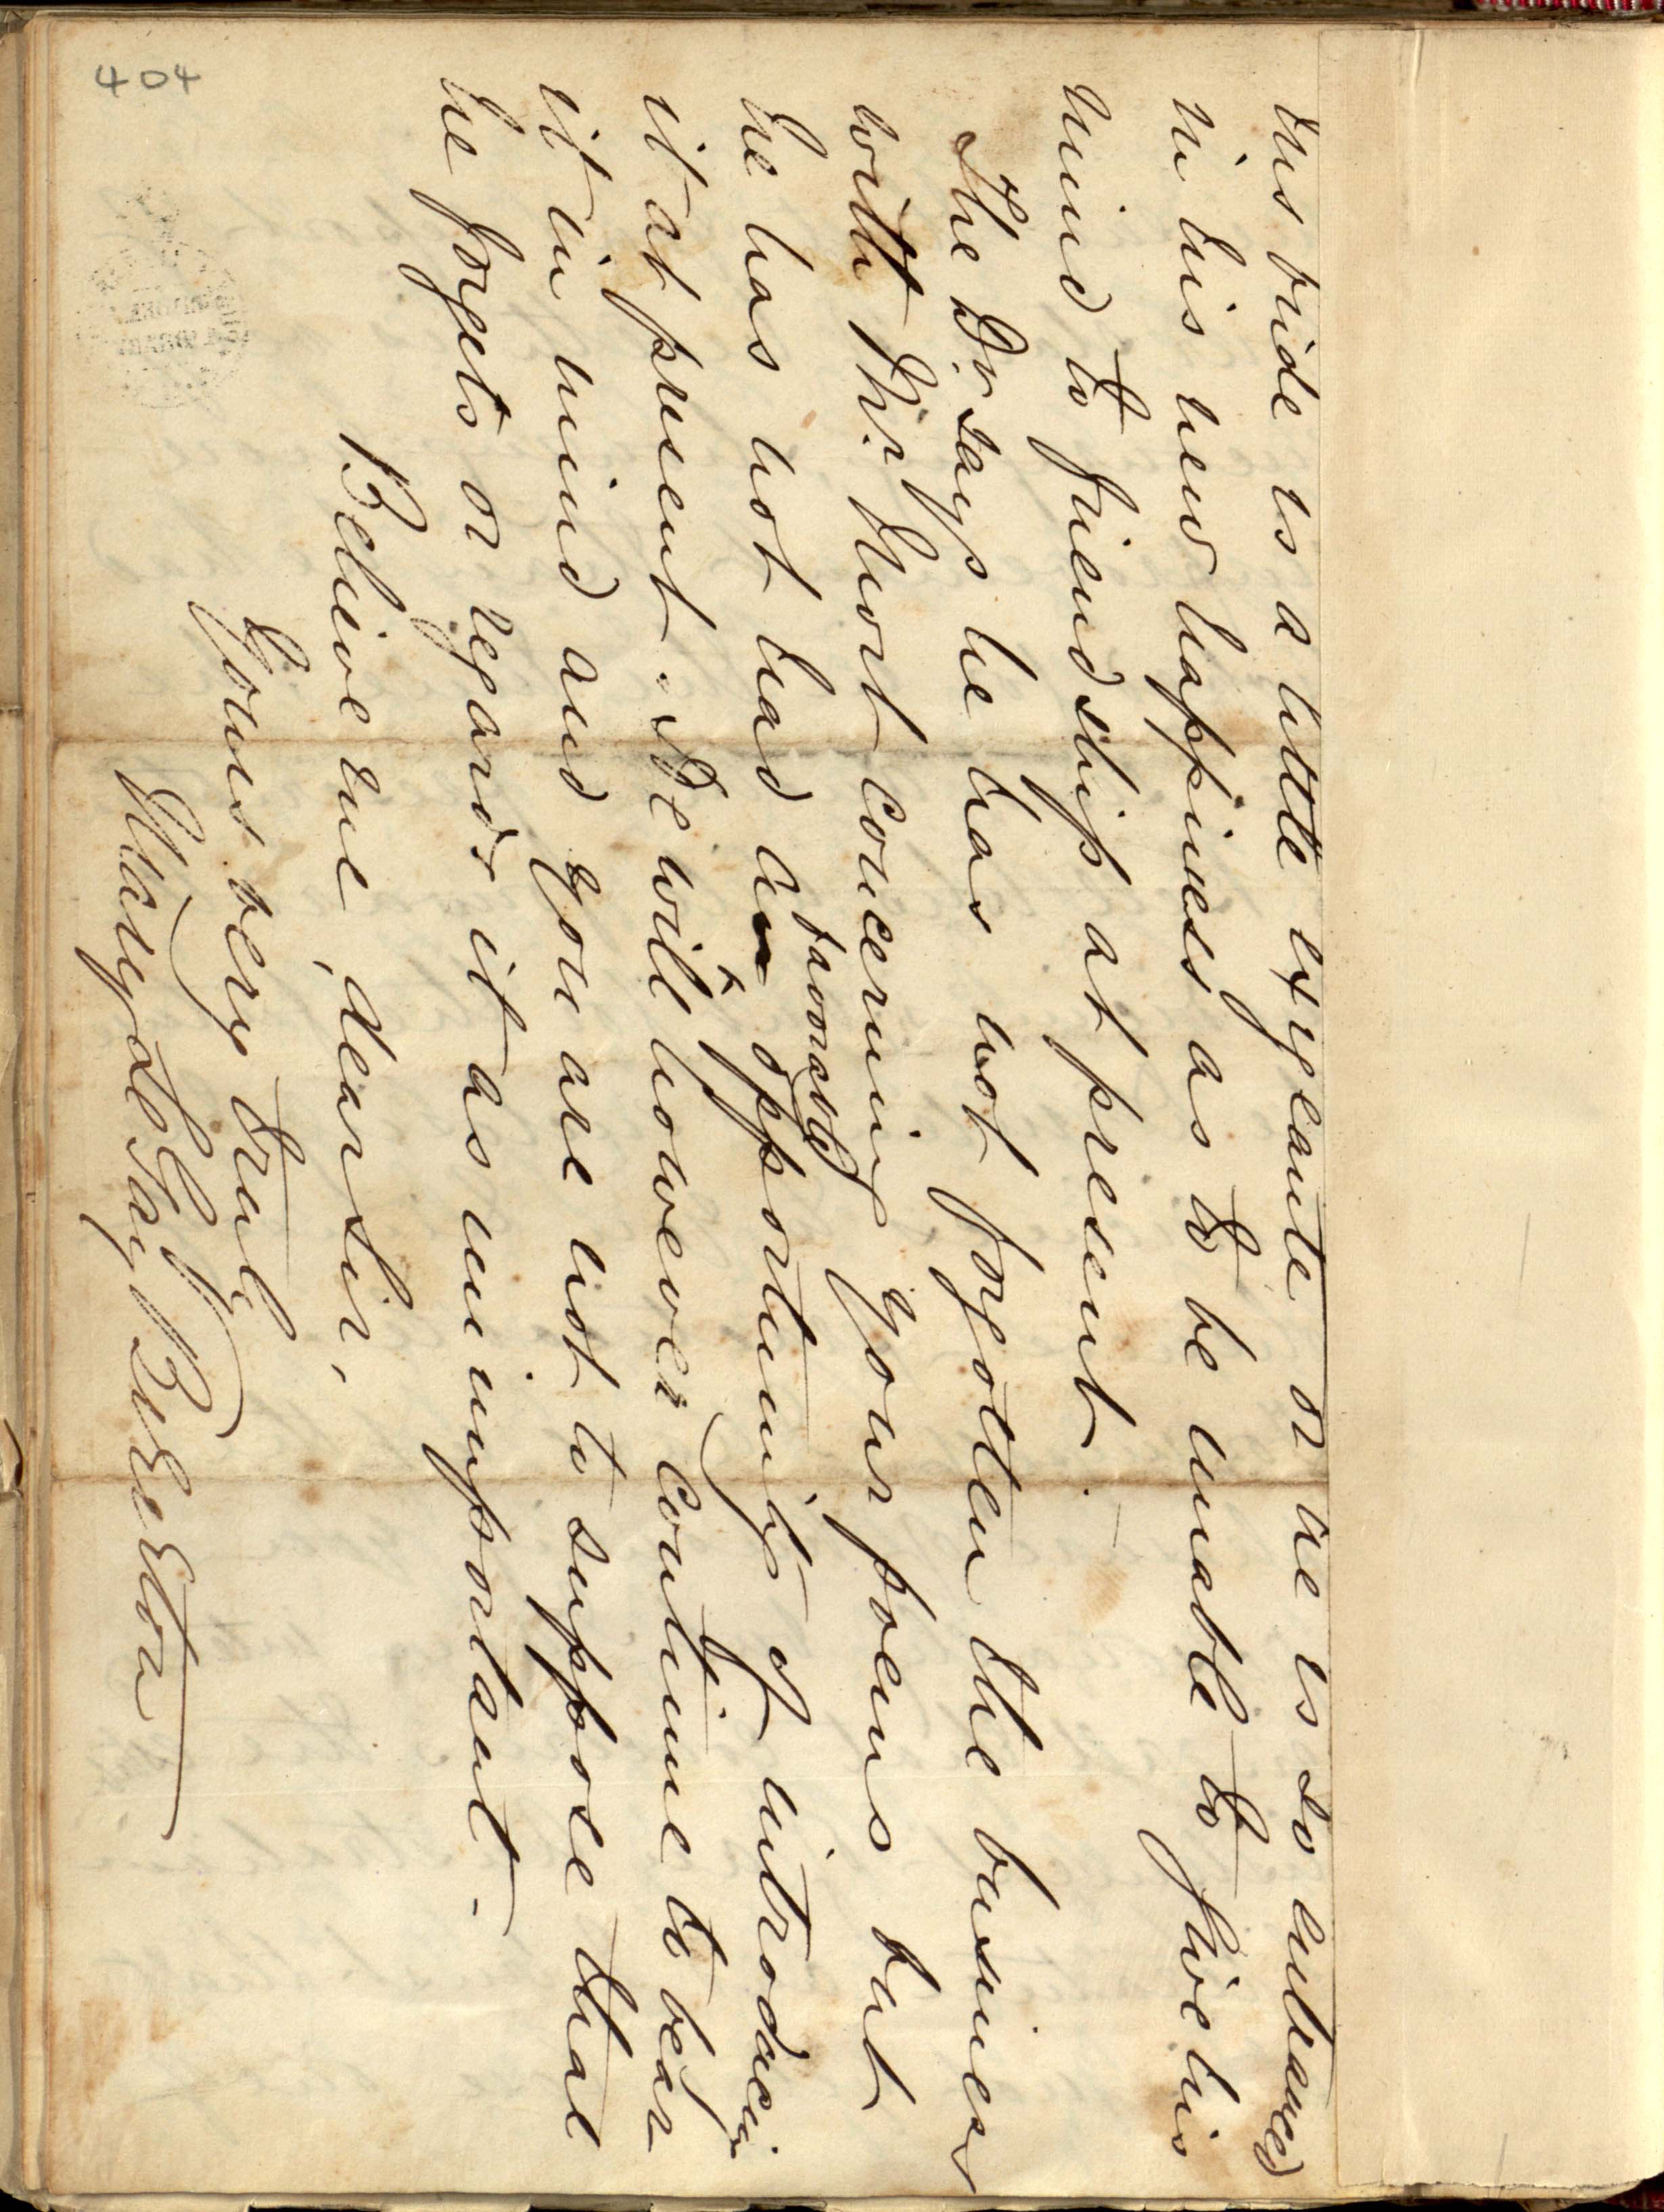 his pride is a little exigeante or he is so entranced
in his new happiness as to be unable to give his
mind to friendship at present.
The Dr. says he has not forgotten the business
with Mr. Hunt concerning your poems but
he has not had an favorable opportunity of introducing
it at present. He will however continue to bear
it in mind and you are not to suppose that
he forgets or regards it as unimportant.
Believe me, dear Sir,
Yours very truly
Mary de Bereton
404